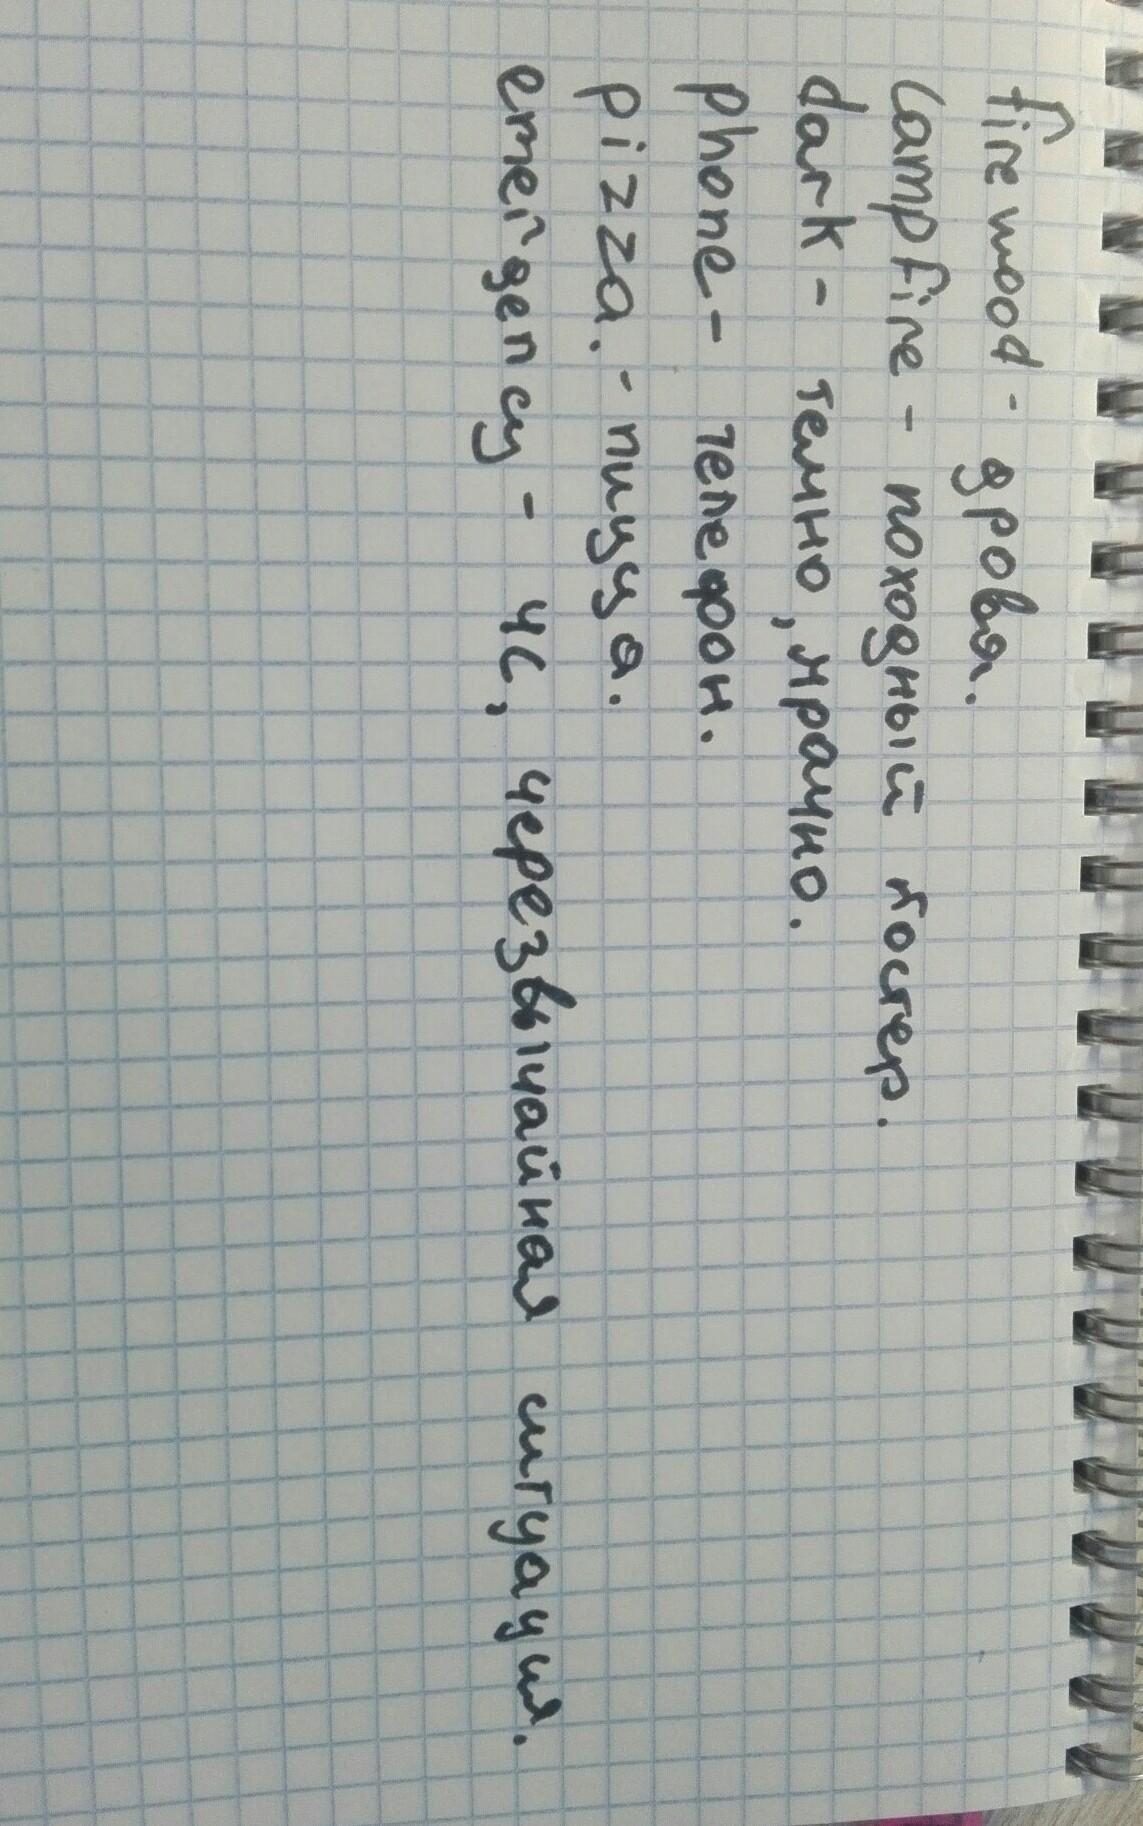 firewood - дрова.
Campfire - походный костер.
dark - темно, мрачно.
phone - телефон.
pizza. - пицца.
emergency - ЧС, черезвычайная ситуация.